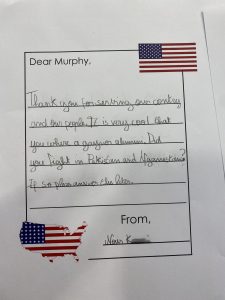 Dear Murphy,
Thank you for serving our contry
and our people. It is very cool that
you where a gayver alumni. Did
you fight in Pakistan and Afganistan?
If so plase answer
From,